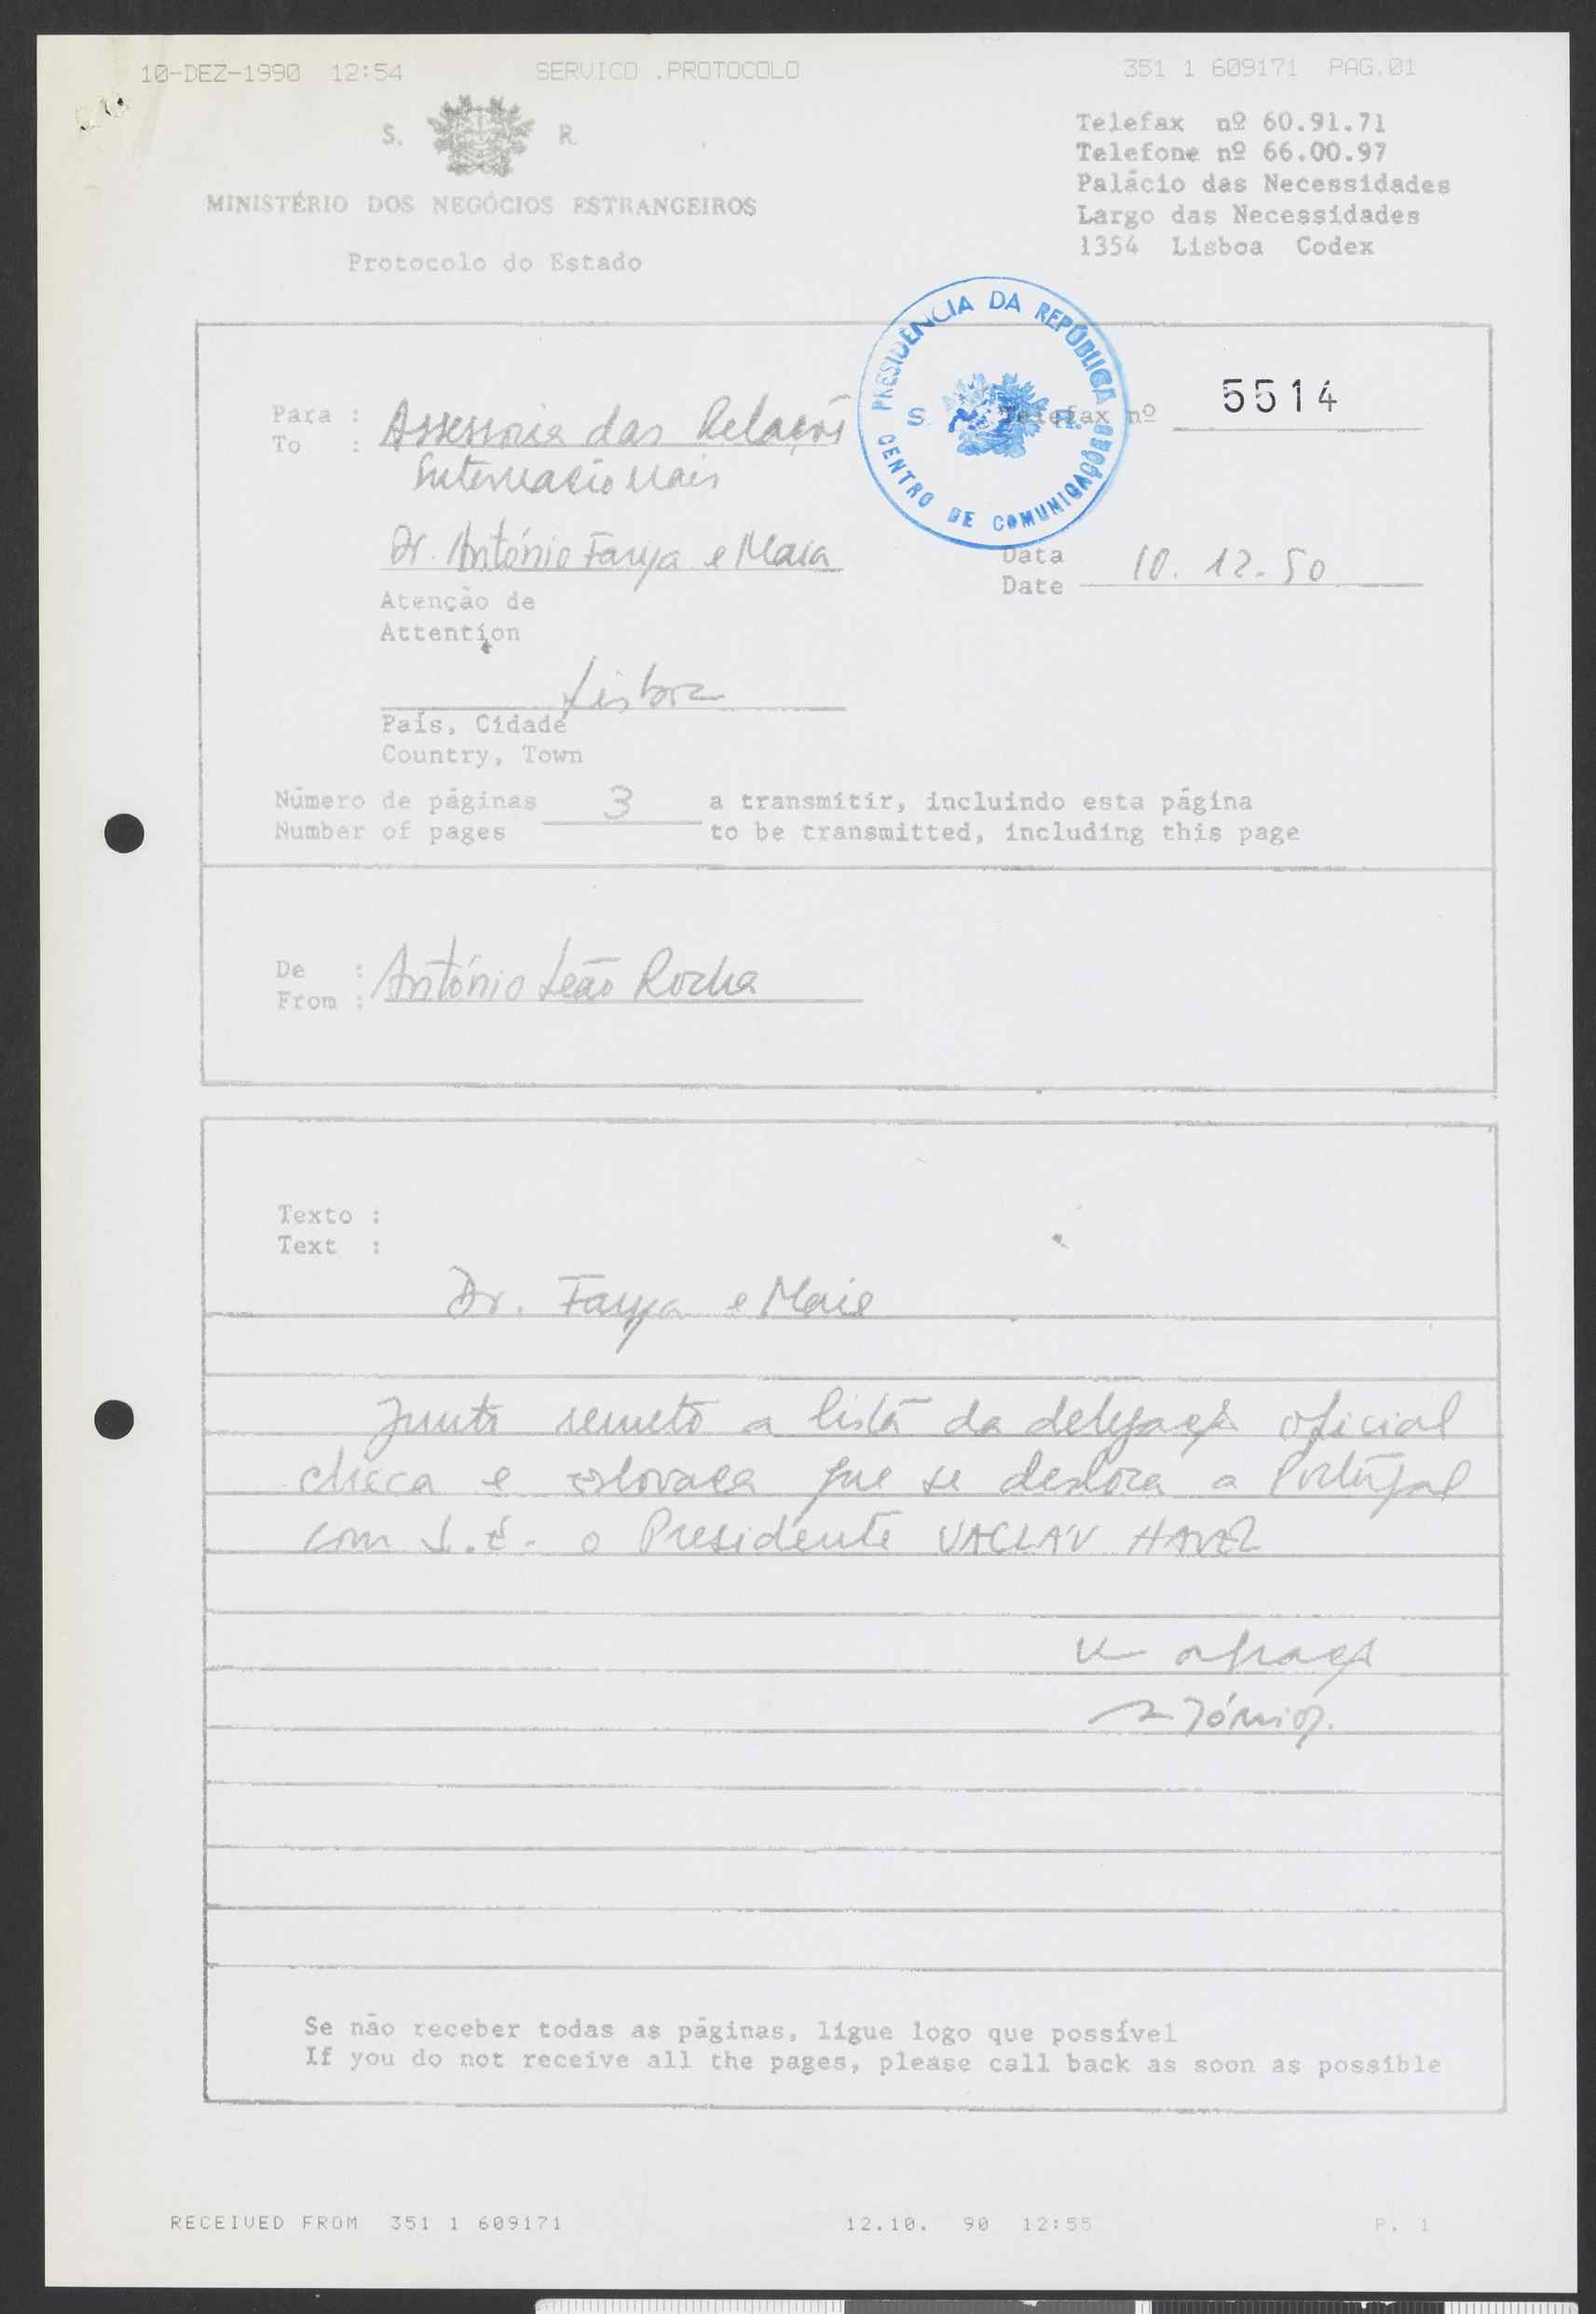 10-DEZ-1990 12:54 SERVICO .PROTOCOLO 351 1 609171 PAG.01
S. R.
MINISTÉRIO DOS NEGÓCIOS ESTRANGEIROS
Protocolo do Estado
Telefax nº 60.91.71
Telefone nº 66.00.97
Palácio das Necessidades
Largo das Necessidades
1354 Lisboa Codex
PRESIDÊNCIA DA REPÚBLICA
S. R.
CENTRO DE COMUNICAÇÕES
Para : Assessoria das Relações
To :
Internacionais
Telefax nº 5514
Dr. António Faria e Maia
Atenção de
Attention
Data
Date 10.12.90
Lisboa
País, Cidade
Country, Town
Número de páginas 3 a transmitir, incluindo esta página
Number of pages to be transmitted, including this page
De :
From : António Leão Rocha
Texto :
Text :
Dr. Faria e Maia
Junto remeto a lista da delegação oficial
checa e eslovaca que se desloca a Portugal
com S.E. o Presidente VACLÁV HAVEL
abraço
António
Se não receber todas as páginas, ligue logo que possível
If you do not receive all the pages, please call back as soon as possible
RECEIVED FROM 351 1 609171 12.10. 90 12:55 P. 1